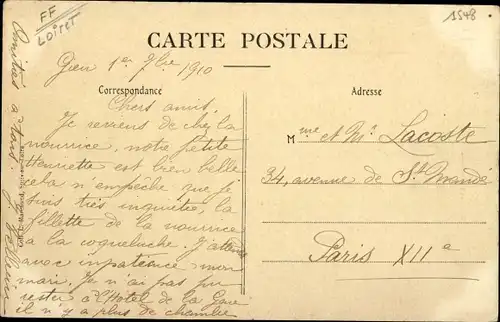 FF
LOIRET
1548
CARTE POSTALE
Gien 1er 7bre 1910
Correspondance
Adresse
Chers amis.
Je reviens de chez la
nourrice, notre petite
Henriette est bien belle
cela n'empêche que je
suis très inquiète, la
fillette de la nourrice
a la coqueluche. J'attends
avec impatience mon
mari. Je n'ai pas pu
rester à l'Hôtel de la Gare
il n'y a plus de chambre
Mme et Mr Lacoste
34, avenue de St Mandé
Paris XIIe
Amitiés à tous.